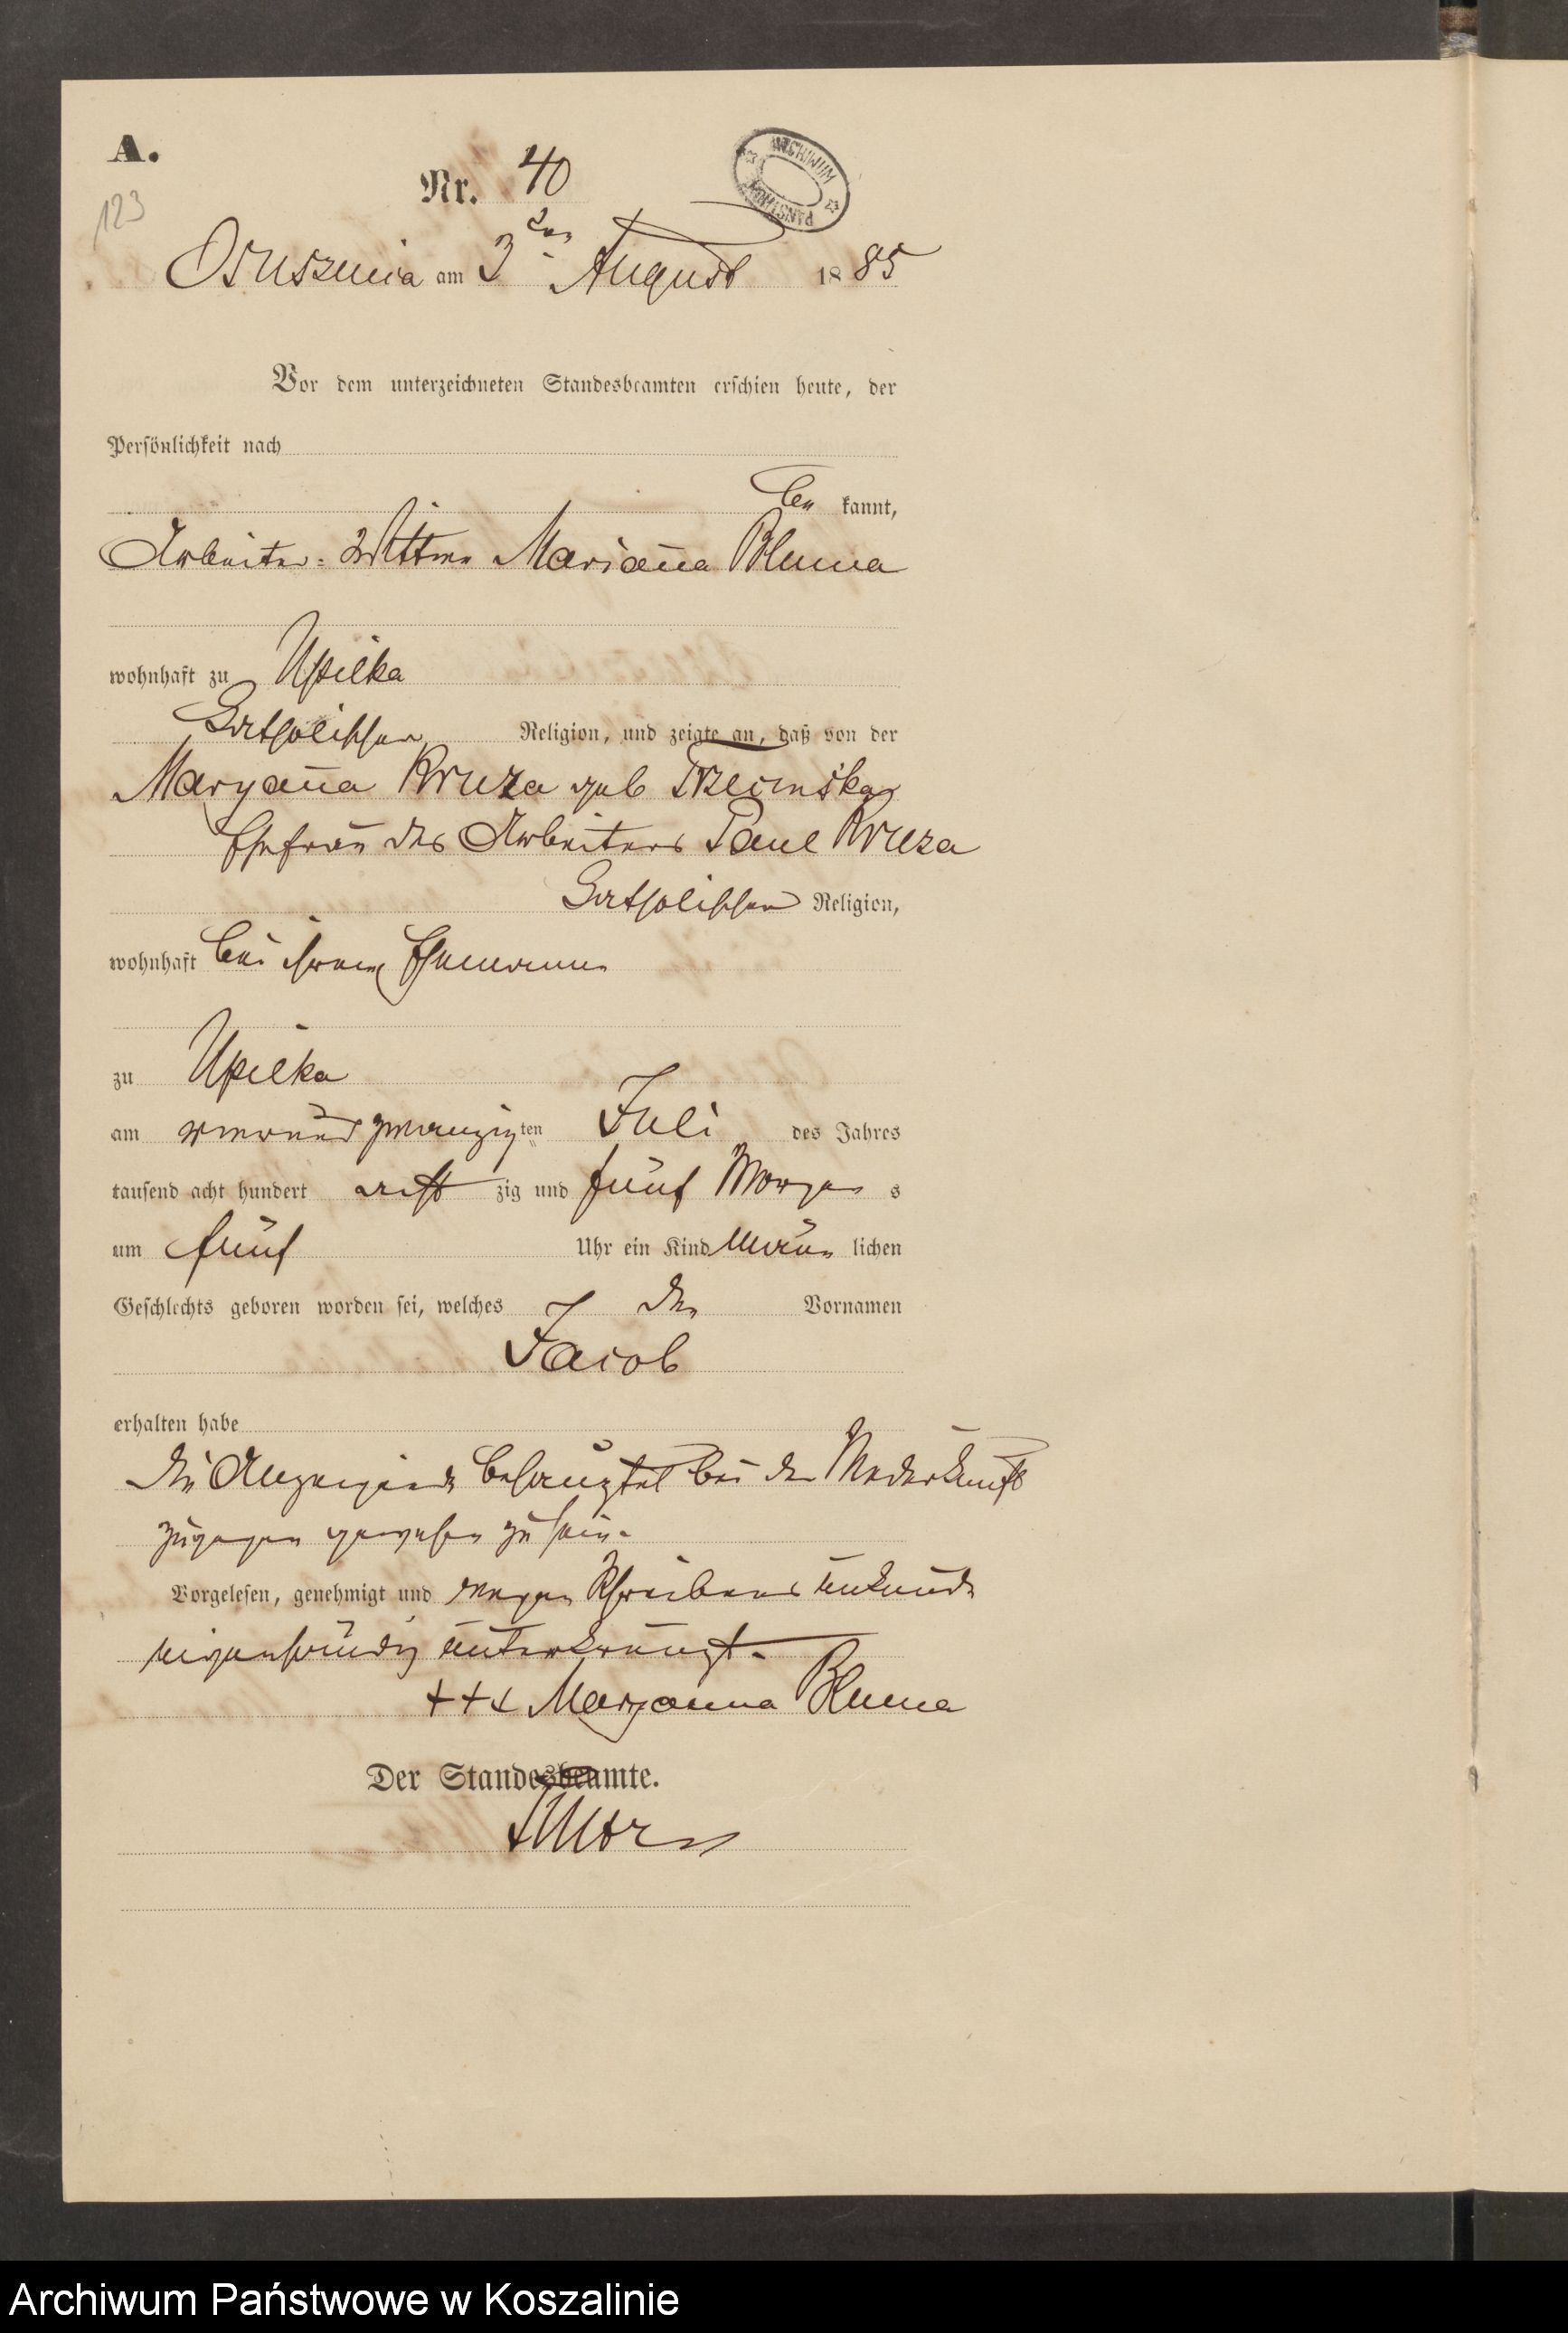 A.
Nr. 40
123
ARCHIWUM PAŃSTWOWE
Osusznica am 3ten August 1885
Vor dem unterzeichneten Standesbeamten erschien heute, der
Persönlichkeit nach
be kannt,
Arbeiter-Wittwe Mariana Bluma
wohnhaft zu Upilka
katholischer Religion, und zeigte an, daß von der
Maryana Kruza geb
Ehefrau des Arbeiters Paul Kruza
katholischer Religion,
wohnhaft bei ihrem Ehemanne
zu Upilka
am vierundzwanzigten Juli des Jahres
tausend acht hundert acht zig und fünf Morgen s
um fünf Uhr ein Kind männ lichen
Geschlechts geboren worden sei, welches den Vornamen
Jacob
erhalten habe
Die Anzeigende behauptet bei der Niederkunft
zugegen gewesen zu sein.
Vorgelesen, genehmigt und wegen Schreibensunkunde
eigenhändig unterkreuzt.
+++ Maryanna Bluma
Der Standesbeamte.
Archiwum Państwowe w Koszalinie